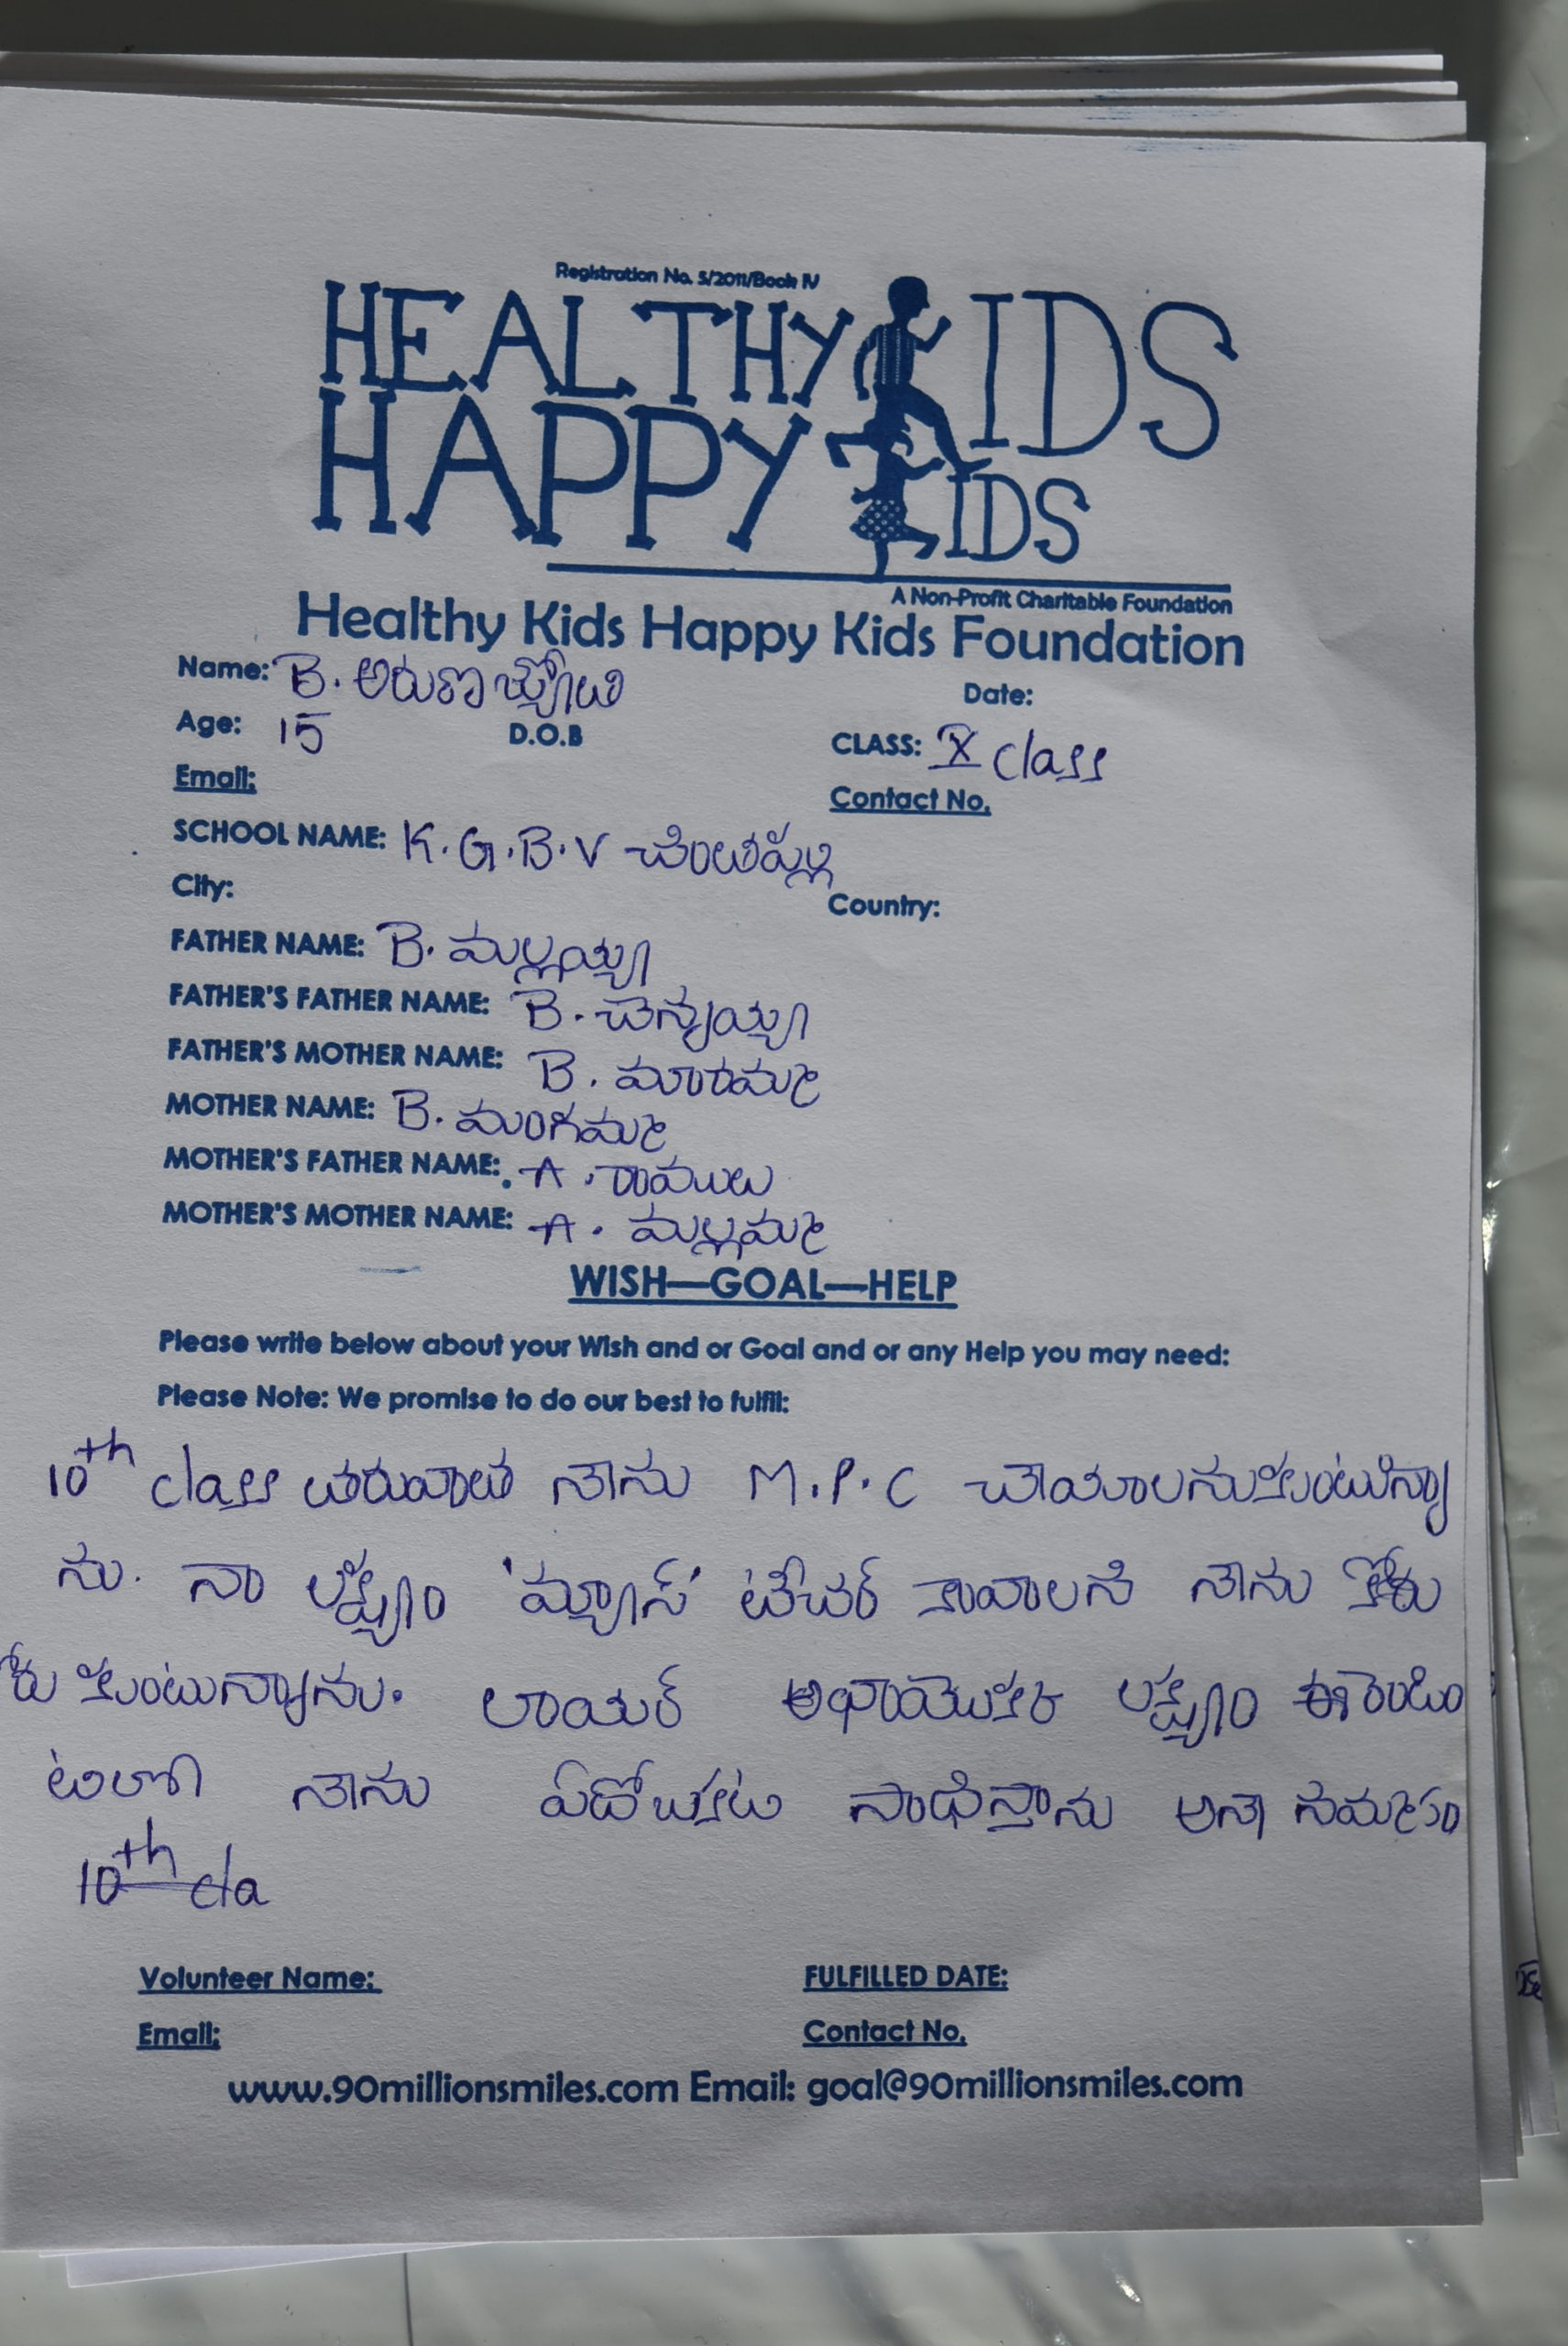 Registration No. 5/2011/Book IV
HEALTHY KIDS
HAPPY KIDS
A Non-Profit Charitable Foundation
Healthy Kids Happy Kids Foundation
Name: B. అరుణ జ్యోతి
Date:
Age: 15 D.O.B CLASS: X class
Email:
Contact No.
SCHOOL NAME: K.G.B.V చింతపల్లి
City: Country:
FATHER NAME: B. మల్లయ్య
FATHER'S FATHER NAME: B. చెన్నయ్య
FATHER'S MOTHER NAME: B. మారమ్మ
MOTHER NAME: B. మంగమ్మ
MOTHER'S FATHER NAME: A. రాములు
MOTHER'S MOTHER NAME: A. మల్లమ్మ
WISH—GOAL—HELP
Please write below about your Wish and or Goal and or any Help you may need:
Please Note: We promise to do our best to fulfil:
10th class తరువాత నేను M.P.C చేయాలనుకుంటున్నా
ను. నా లక్ష్యం 'మ్యాస్' టీచర్ కావాలని నేను కోరు
రు కుంటున్నాను. లాయర్ లక్ష్యం ఈ రెండిం
టిలో నేను ఏదోఒకటి సాధిస్తాను అనే నమ్మకం
10th cla
Volunteer Name: FULFILLED DATE:
Email: Contact No.
www.90millionsmiles.com Email: goal@90millionsmiles.com